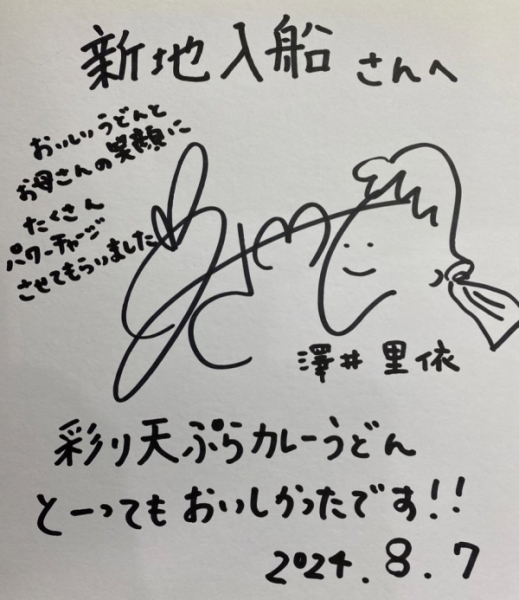 新地入船 さんへ
おいしいうどんと
お母さんの笑顔に
たくさん
パワーチャージ
させてもらいました
澤井 里依
彩り天ぷらカレーうどん
とーってもおいしかったです!!
2024.8.7